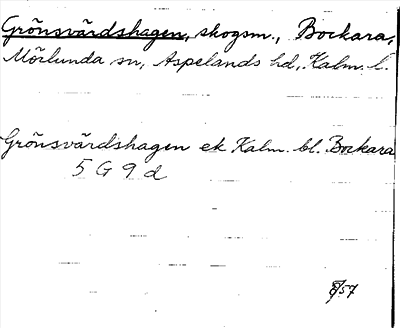 Grönsvärdshagen, skogsm., Bockara,
Mörlunda sn, Aspelands hd, Kalm. l.
Grönsvärdshagen ek Kalm. bl. Bockara
5 G 9 d
8/57